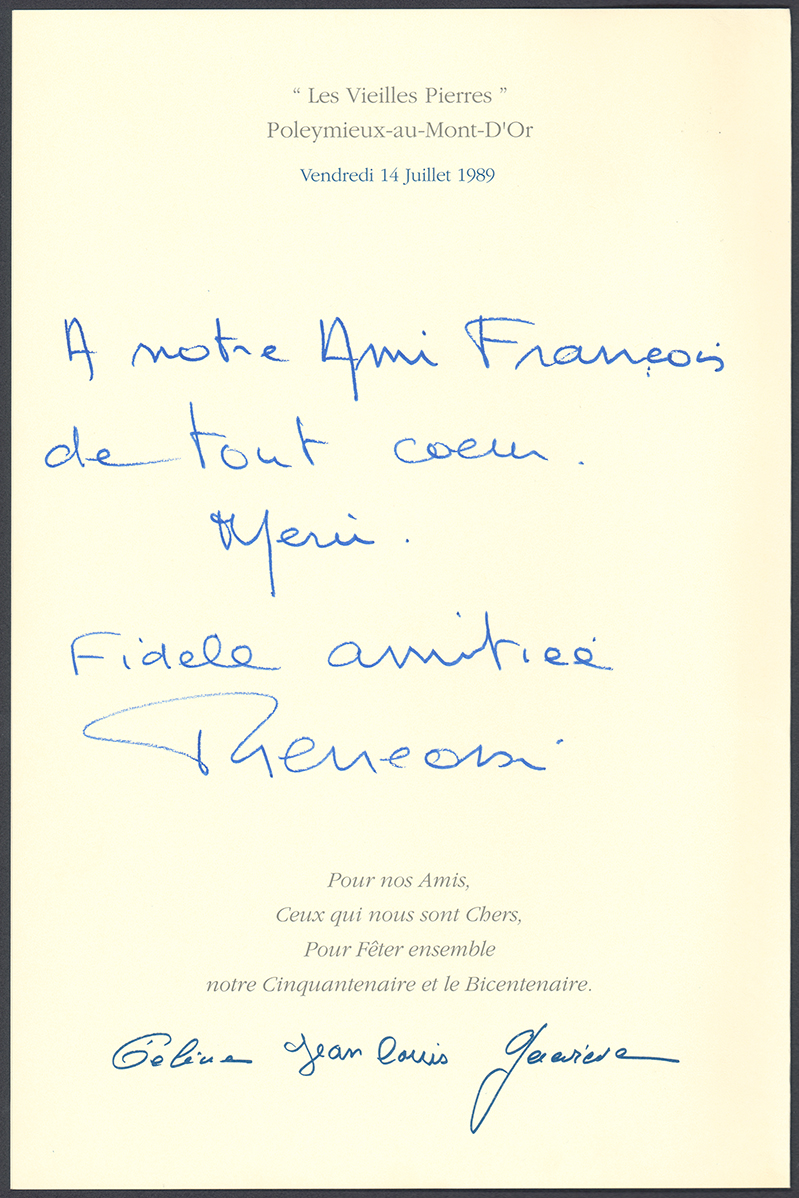 “ Les Vieilles Pierres ”
Poleymieux-au-Mont-D'Or
Vendredi 14 Juillet 1989
A notre Ami François
de tout coeur.
Merci.
Fidele amitieé
Pour nos Amis,
Ceux qui nous sont Chers,
Pour Fêter ensemble
notre Cinquantenaire et le Bicentenaire.
Céline Jean Louis